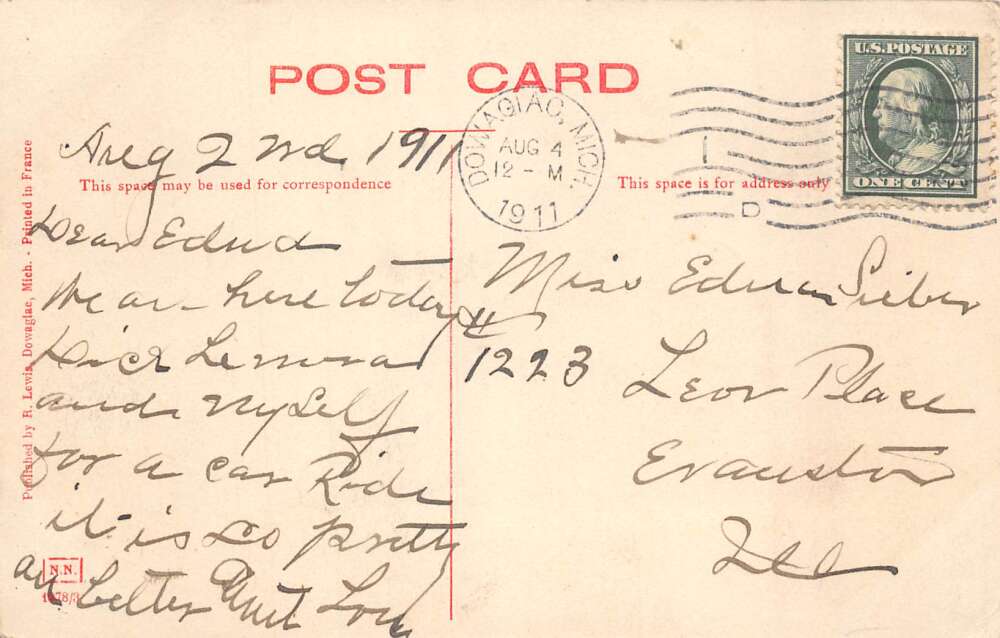 POST CARD
U.S. POSTAGE
ONE CENT
DOWAGIAC, MICH.
AUG 4
12 - M
1911
1
D
Aug 2nd 1911
This space may be used for correspondence
This space is for address only
Dear
we are here today
and Myself
for a car Ride
it is so pretty
am better Aunt Lou
Miss Edna Sieber
# 1223
Leon Place
Evanston
Ill
Published by R. Lewis, Dowagiac, Mich. - Printed in France
N.N.